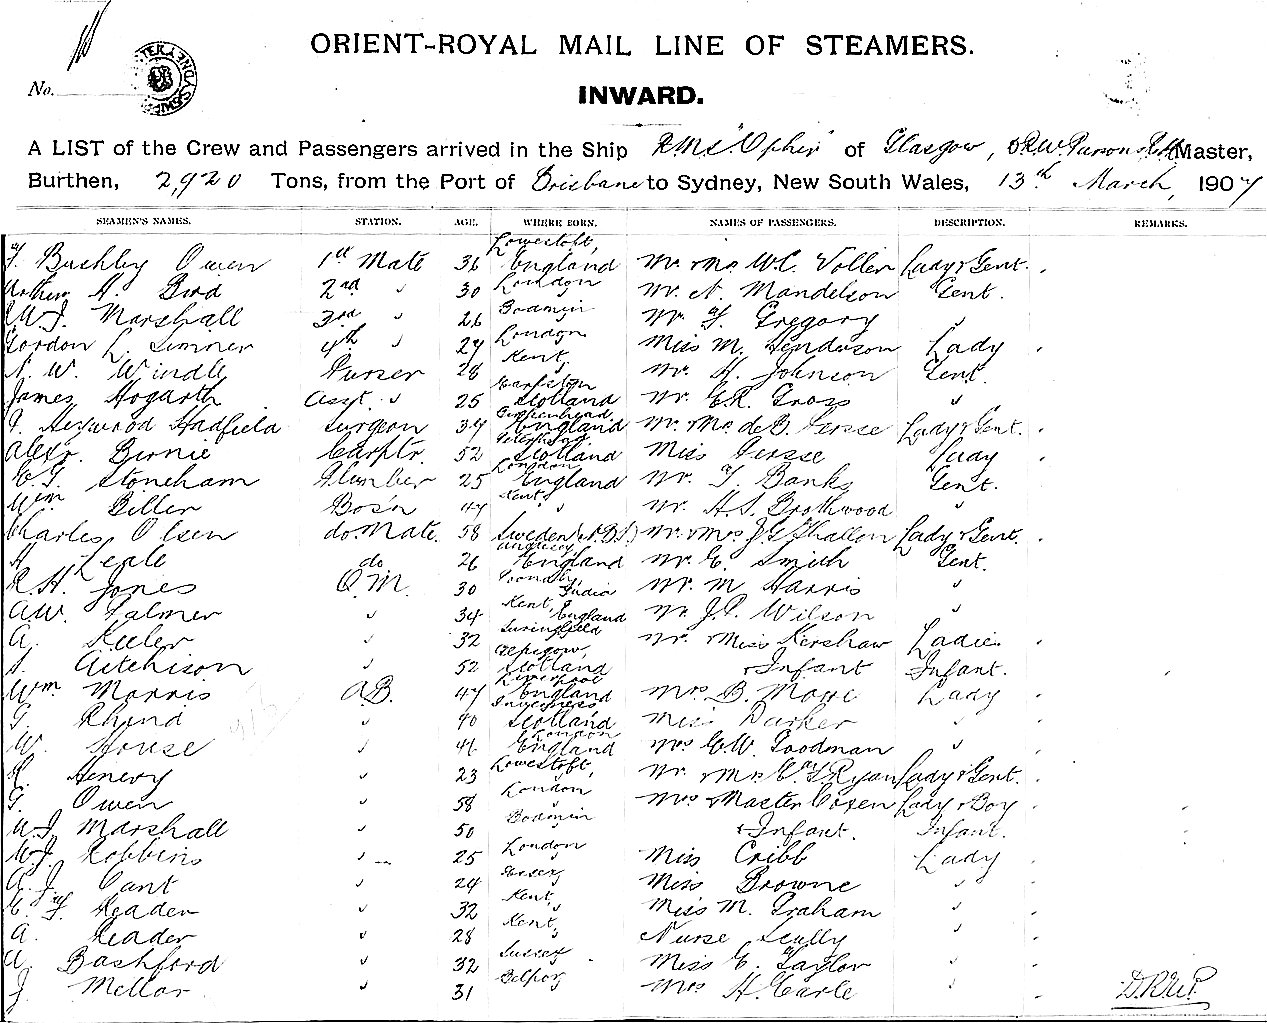 ORIENT-ROYAL MAIL LINE OF STEAMERS.
No.
INWARD.
A LIST of the Crew and Passengers arrived in the Ship R.M.S. "Ophir" of Glasgow, Master,
Burthen, 2920 Tons, from the Port of Brisbane to Sydney, New South Wales, 13th March, 1907
SEAMEN'S NAMES. STATION. AGE. WHERE BORN. NAMES OF PASSENGERS. DESCRIPTION. REMARKS.
Bushby Owen 1st Mate 36 Lowestoft, England Mr. & Mrs. W.C. Voller Lady & Gent.
Arthur H. Bird 2nd " 30 London Mr. N. Mandelson Gent.
W.J. Marshall 3rd " 26 Bodmin Mr. F. Gregory "
Gordon L. Sumner 4th " 27 London Miss M. Henderson Lady
W. Windle Purser 28 Kent, " Mr. H. Johnson Gent.
James Hogarth Asst. " 25 Scotland Mr. E.R. Gross "
Heywood Hadfield Surgeon 34 Birkenhead England Mr. Mrs. de B. Persse Lady & Gent.
Alexr. Birnie Carptr. 52 Scotland Miss Persse Lady
Stoneham Plumber 25 London England Mr. T. Banks Gent.
Wm Biller Bos'n 47 Kent " Mr. H.S. Brothwood "
Charles Olsen do. Mate. 58 Sweden Mr. & Mrs. J.G. Thallon Lady & Gent.
H. Leple do 26 England Mr. E. Smith Gent.
R.H. Jones Q.M. 30 India Mr. M Harris "
A.W. Palmer " 34 Kent, England Mr. J.P. Wilson "
A. " 32 Mr. & Miss Kershaw Ladie
Aitchison " 52 Scotland & Infant Infant.
Wm Morris A.B. 47 Liverpool England Mrs B. Lady
G. Rhind " 40 Inverness Scotland Miss Parker "
W. House " 41 London England Mrs E.W. Goodman "
Henery " 23 Lowestoft, Mr. & Mrs. Ryan Lady & Gent.
G. Owen " 58 London Mrs & Master Coxen Lady & Boy
W.J. Marshall " 50 Bodmin & Infant. Infant.
W.J. Robbins " 25 London Miss Cribb Lady
A.J. Cant " 24 Miss Browne "
Reader " 32 Kent, " Miss M. Graham "
A. Reader " 28 Kent, " Nurse Scully "
A. Bashford " 32 Sussex Miss E. Taylor
J. Mellor " 31 Mrs H. Earle "